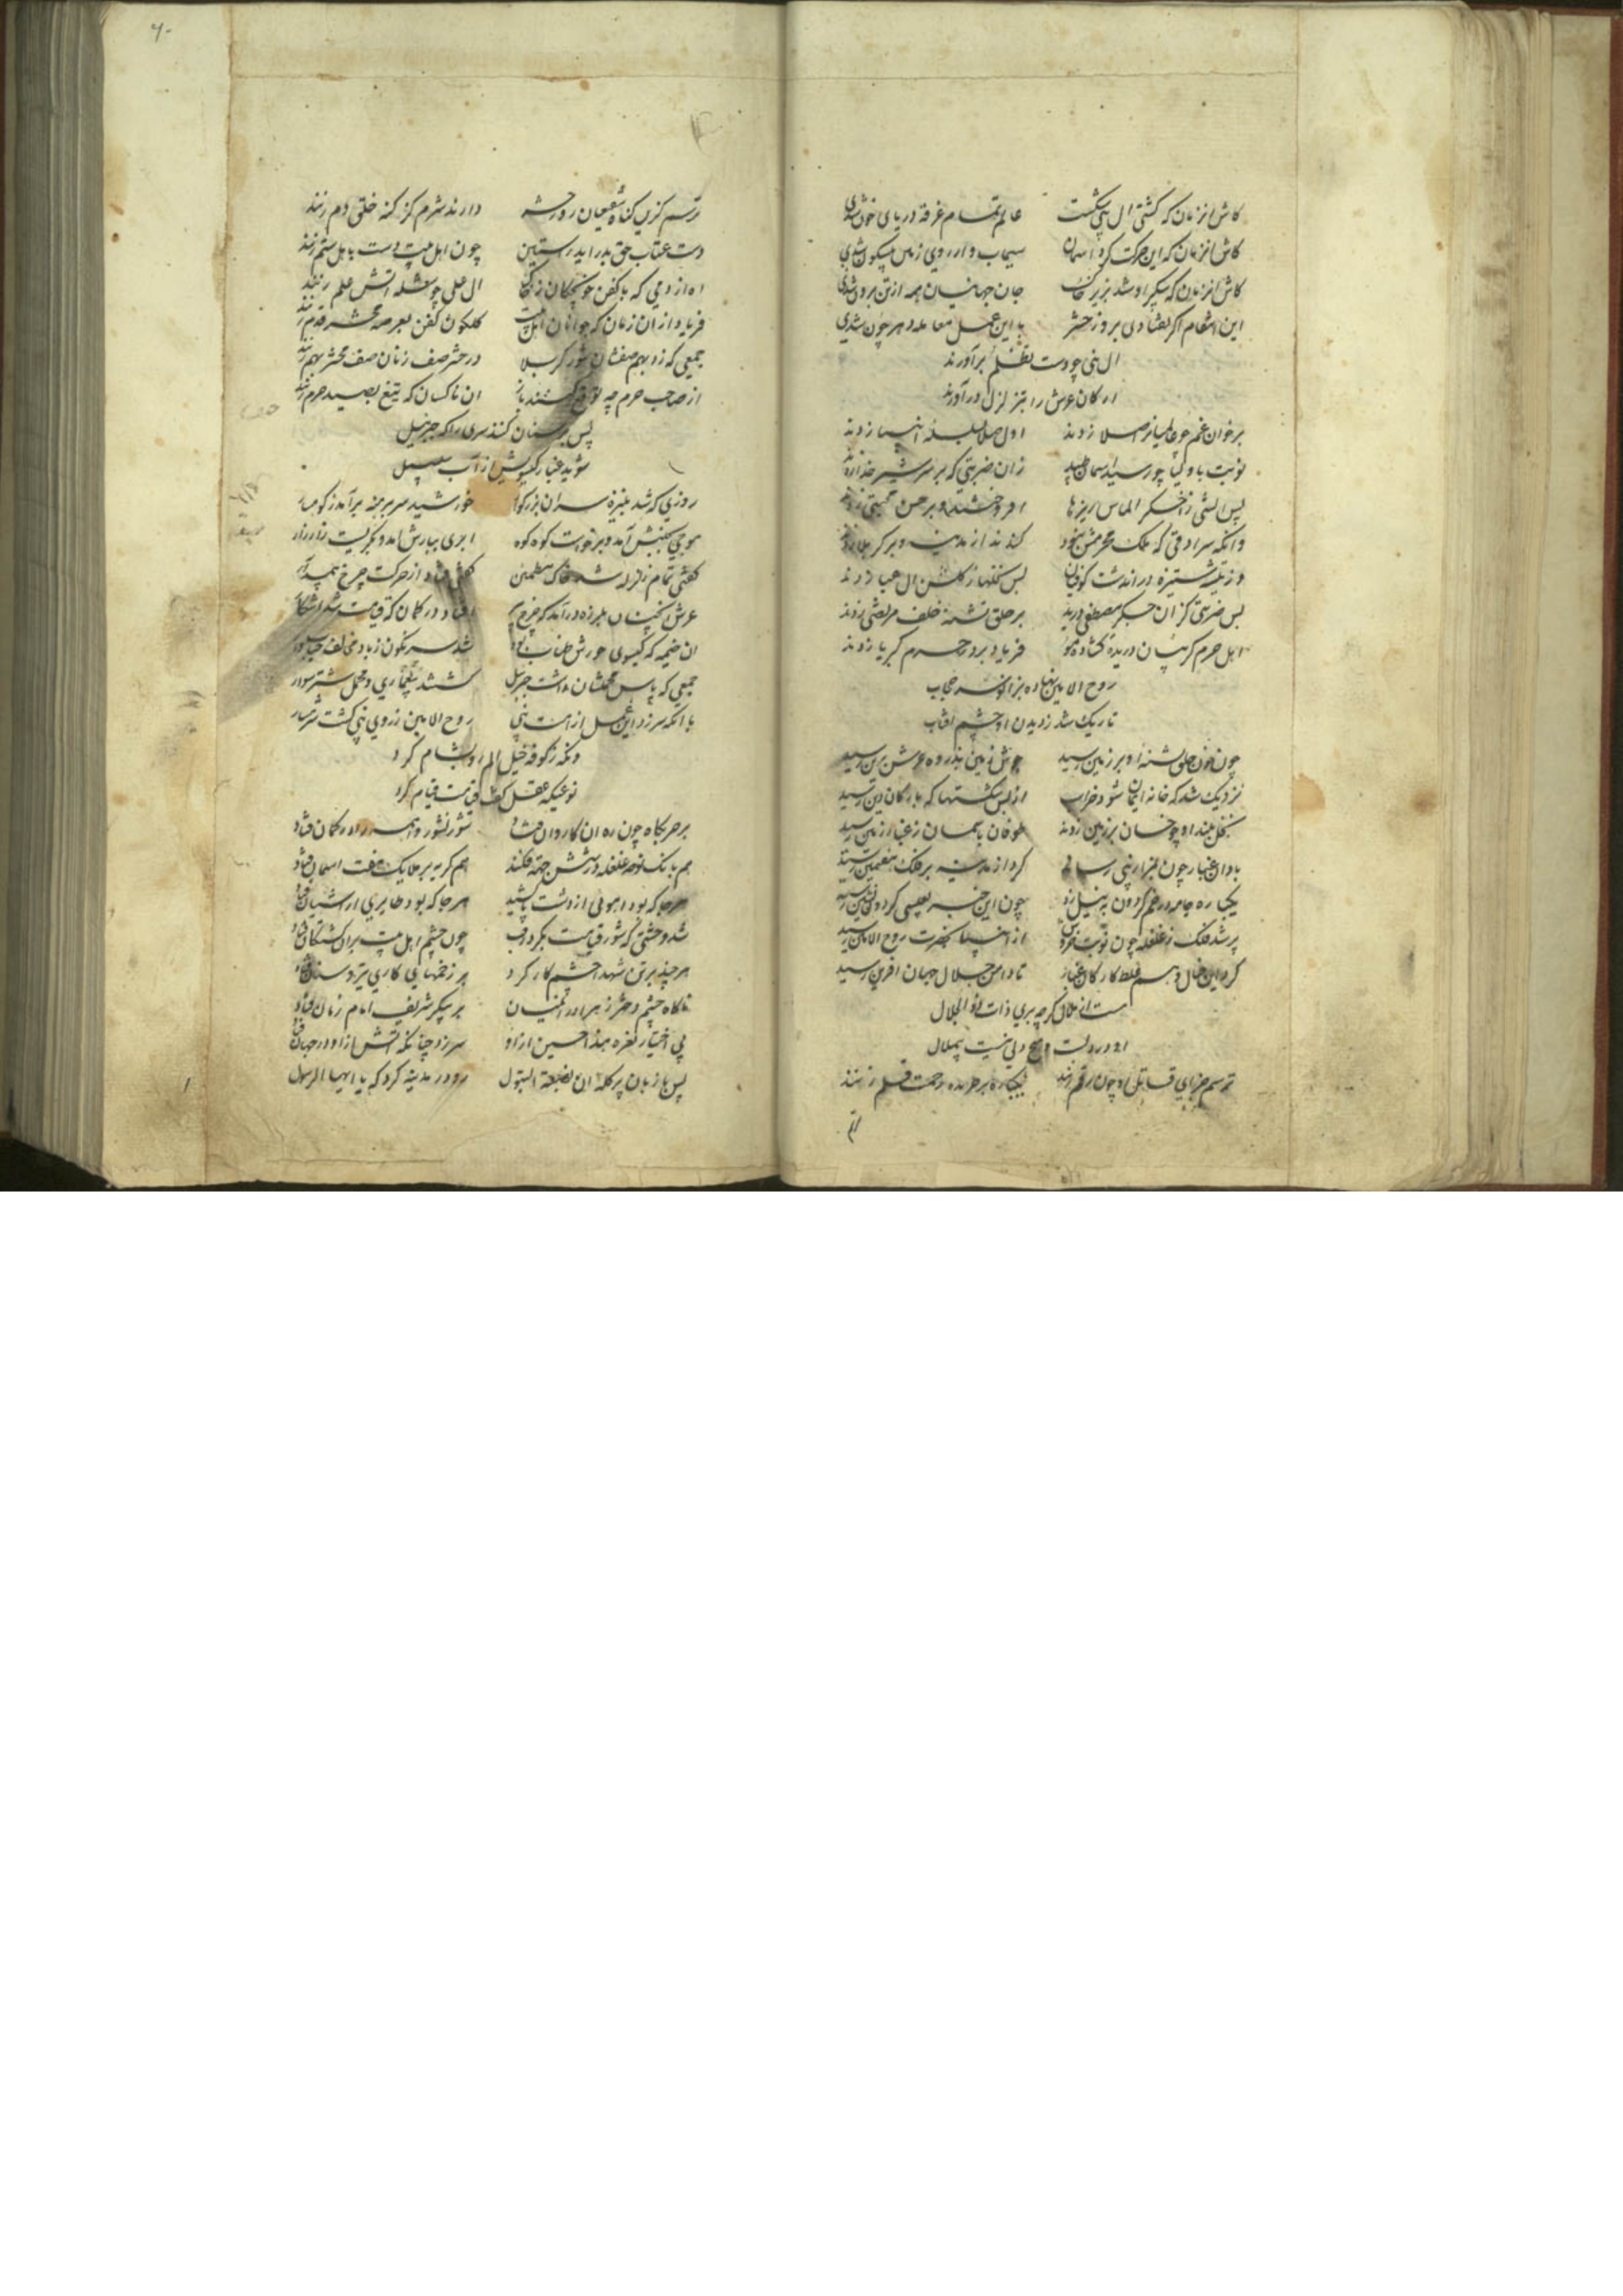 کاش انزمان که کشتی ال نبی شکست عالم تمام غرقه دریای خون شدی
کاش انزمان که این حرکت کرد آسمان سیماب وار روی زمین بیسکون شدی
کاش انزمان که پیکر او شد بزیر خاک جان جهانیان همه از تن برون شدی
این انتقام اگر نفتادی بروز حشر با این عمل معامله دهر چون شدی
ال نبی چو دست تظلم برآورند
ارکان عرش را بتزلزل درآورند
برخوان غم چو عالمیانرا صلا زدند اول صلا بسلسله انبیا زدند
نوبت باولیا چو رسید آسمان طپید زان ضربتی که بر سر شیر خدا زدند
پس آتشی ز اخگر الماس ریزها افروختند و بر حسن مجتبی زدند
وانگه سرادقی که ملک محرمش نبود کندند از مدینه و بر کربلا زدند
وز تیشه ستیزه دراندشت کوفیان بس نخلها ز گلشن ال عبا زدند
بس ضربتی کزان جگر مصطفی درید بر حلق تشنه خلف مرتضی زدند
اهل حرم گریبان دریده گشاده مو فریاد بر در حرم کبریا زدند
روح الامین نهاده بزانو سر حجاب
تاریک شد ز دیدن او چشم افتاب
چون خون حلق تشنه او بر زمین رسید جوش از زمین بذروه عرش برین رسید
نزدیک شد که خانه ایمان شود خراب از بس شکستها که بارکان دین رسید
نخل بلند او چو خسان بر زمین زدند طوفان باسمان ز غبار زمین رسید
باد ان غبار چون بمزار نبی رساند گرد از مدینه بر فلک هفتمین رسید
یکباره جامه در خم گردون به نیل زد چون این خبر بعیسی گردون نشین رسید
پر شد فلک ز غلغله چون نوبت خروش از انبیا بحضرت روح الامین رسید
کرد این خیال وهم غلط کار کان غبار تا دامن جلال جهان افرین رسید
هست از ملال گرچه بری ذات ذو الجلال
او در دلست و هیچ دلی نیست بیملال
ترسم جزای قاتل او چون رقم زنند یکباره بر جریده رحمت قلم زنند
۶۰
ترسم کزین گناه شفیعان روز حشر دارند شرم کز گنه خلق دم زنند
دست عتاب حق بدر اید ز استین چون اهل بیت دست باهل ستم زنند
اه از دمی که با کفن خونچکان ز خاک ال علی چو شعله آتش علم زنند
فریاد از ان زمان که جوانان اهل بیت گلگون کفن بعرصه محشر قدم زنند
جمعی که زد بهم صفشان شور کربلا در حشر صف زنان صف محشر بهم زنند
از صاحب حرم چه توقع کنند باز ان ناکسان که تیغ بصید حرم زنند
پس بر سنان کنند سری را که جبرئیل
شوید غبار گیسویش از آب سلسبیل
روزی که شد بنیزه سر ان بزرگوار خورشید سر برهنه برآمد ز کوهسار
موجی بجنبش آمد و برخواست کوه کوه ابری ببارش امد و بگریست زار زار
گفتی تمام زلزله شد خاک مطمئن گفتی فتاد از حرکت چرخ بیقرار
عرش انچنان بلرزه درآمد که چرخ پیر افتاد در گمان که قیامت شد اشکار
ان خیمه که گیسوی حورش طناب بود شد سرنگون ز باد مخالف حباب وار
جمعی که پاس محملشان داشت جبرئیل گشتند بیعماری و محمل شتر سوار
با انکه سر زد این عمل از امت نبی روح الامین ز روی نبی گشت شرمسار
وانگه ز کوفه خیل الم رو بشام کرد
نوعیکه عقل گفت قیامت قیام کرد
بر حربگاه چون ره ان کاروان فتاد شور نشور واهمه را در گمان فتاد
هم بانگ نوحه غلغله در شش جهة فکند هم گریه بر ملایک هفت اسمان فتاد
هرجا که بود اهوئی از دشت پا کشید هرجا که بود طایری از اشیان فتاد
شد وحشتی که شور قیامت بگرد رفت چون چشم اهل بیت بران کشتگان فتاد
هرچند بر تن شهدا چشم کار کرد بر زخمهایی کاری تیر و سنان فتاد
ناگاه چشم دختر زهرا در انمیان بر پیکر شریف امام زمان فتاد
بی اختیار نعره هذا حسین از او سر زد چنانکه آتش ازو در جهان فتاد
پس با زبان پر گله ان بضعة البتول رو در مدینه کرد که یا ایها الرسول